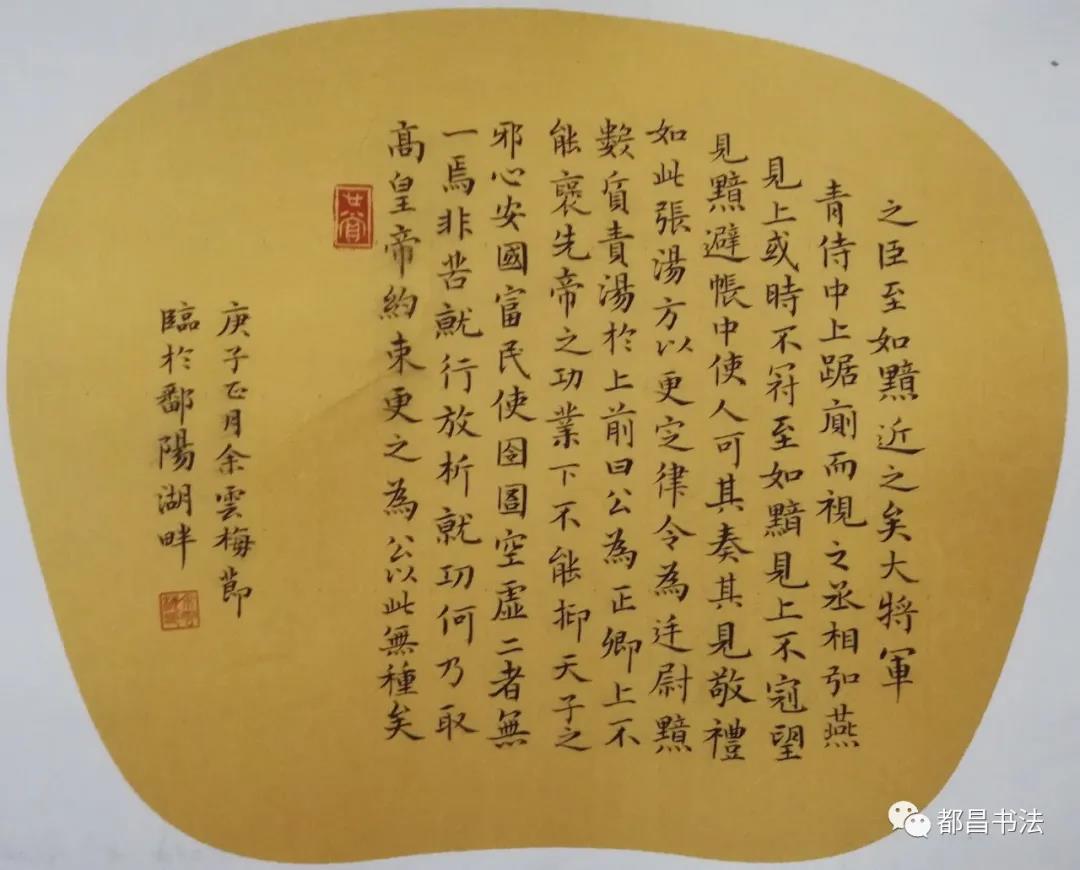 之臣至如黯近之矣大將軍
青侍中上踞廁而視之丞相弘燕
見上或時不冠至如黯見上不冠望
見黯避帳中使人可其奏其見敬禮
如此張湯方以更定律令為廷尉黯
數質責湯於上前曰公為正卿上不
能襃先帝之功業下不能抑天子之
邪心安國富民使囹圄空虛二者無
一焉非苦就行放析就功何乃取
高皇帝約束更之為公以此無種矣
庚子正月余雲梅節
臨於鄱陽湖畔
都昌书法